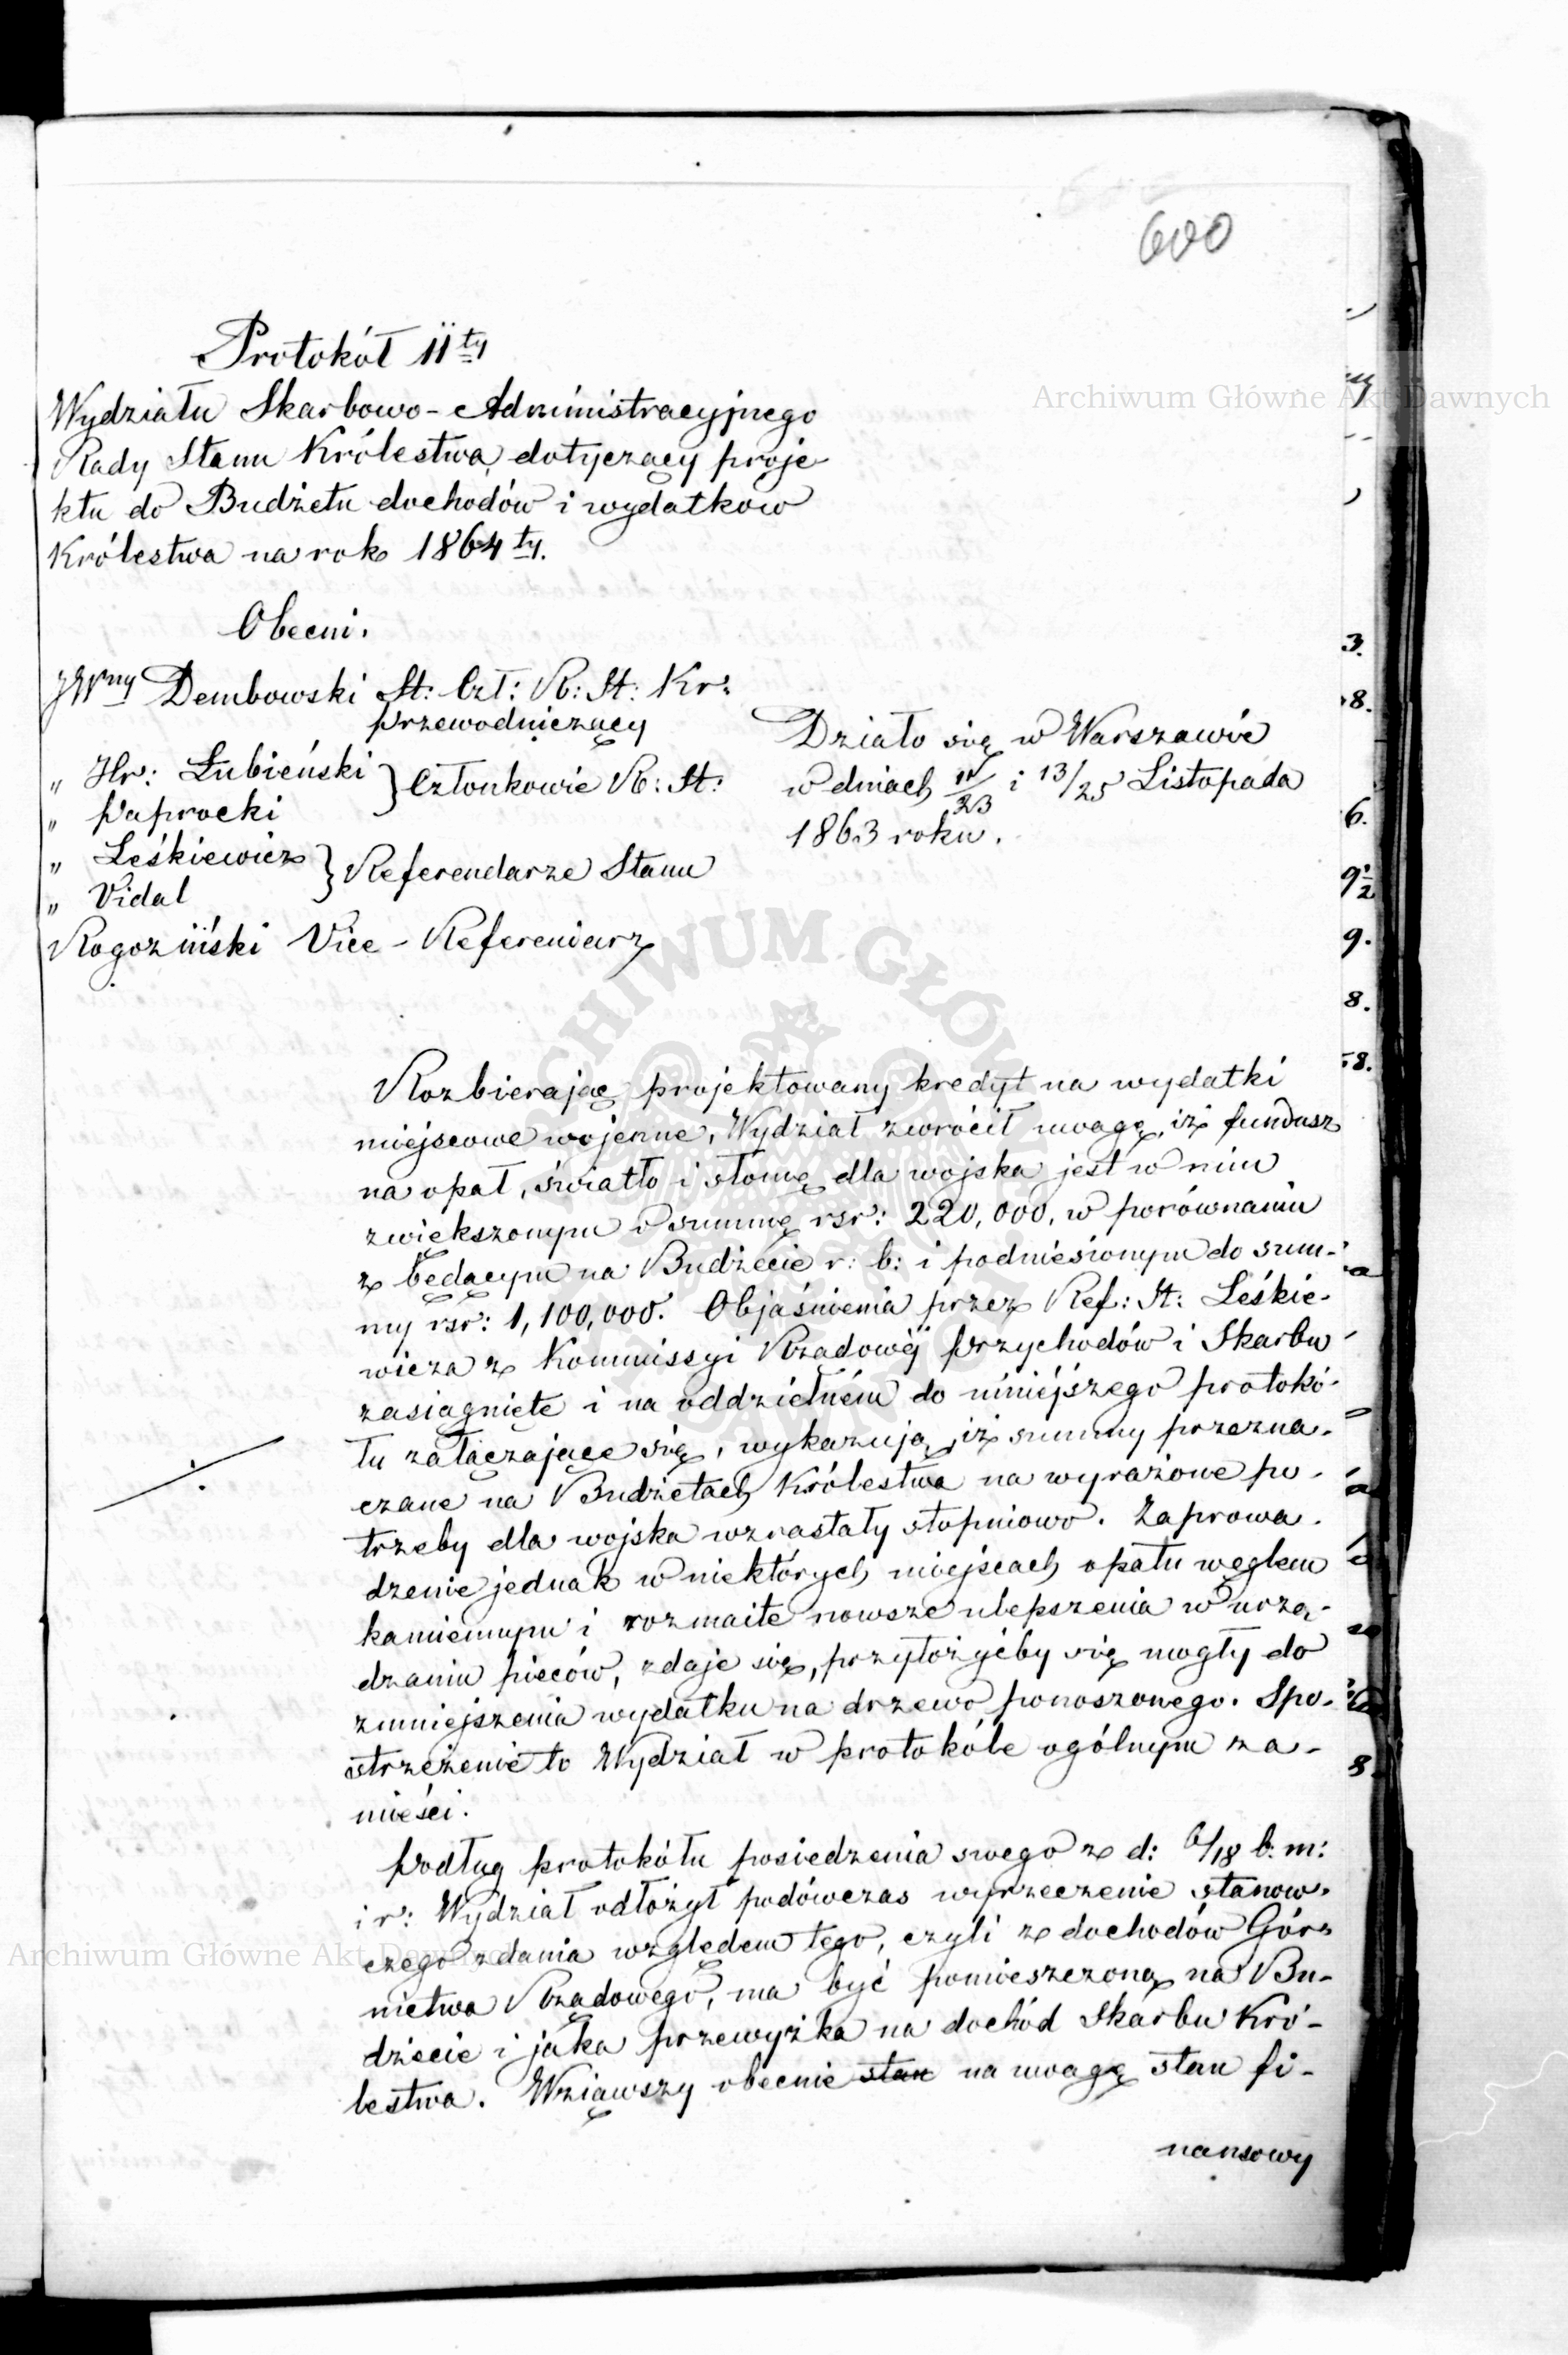 600
Protokół 11ty
Wydziału Skarbowo-Administracyjnego
Rady Stanu Królestwa, dotyczący proje-
ktu do Budżetu dochodów i wydatków
Królestwa na rok 1864ty.
Obecni.
JWny Dembowski St: Czł: R: St: Kr:
przewodniczący
" Hr: Łubieński } Członkowie R: St:
" Paprocki
" Leśkiewicz } Referendarze Stanu
" Vidal
Rogoziński Vice-Referendarz
Działo się w Warszawie
w dniach 11/23 i 13/25 Listopada
1863 roku.
Rozbierając projektowany kredyt na wydatki
miejscowe wojenne, Wydział zwrócił uwagę, iż fundusz
na opał, światło i słomę dla wojska jest w nim
zwiększonym o summę rsr: 220,000, w porównaniu
z będącym na Budżecie r: b: i podniesionym do sum-
my rsr: 1,100,000. Objaśnienia przez Ref: St: Leśkie-
wicza z Kommissyi Rządowéj Przychodów i Skarbu
zasiągnięte i na oddzielném do niniejszego protokó-
łu załączające się, wykazują, iż summy przezna-
czane na Budżetach Królestwa na wyrażone po-
trzeby dla wojska wzrastały stopniowo. Zaprowa-
dzenie jednak w niektórych miejscach opału węglem
kamiennym i rozmaite nowsze ulepszenia w urzą-
dzaniu pieców, zdaje się, przyłożyćby się mogły do
zmniejszenia wydatku na drzewo ponoszonego. Spo-
strzeżenie to Wydział w protokóle ogólnym za-
mieści.
Podług protokółu posiedzenia swego z d: 6/18 b: m:
i r: Wydział odłożył podówczas wyrzeczenie stanow-
czego zdania względem tego, czyli z dochodów Gór-
nictwa Rządowego, ma być pomieszczoną na Bu-
dżecie i jaka przewyżka na dochód Skarbu Kró-
lestwa. Wziąwszy obecnie stan na uwagę stan fi-
nansowy
Archiwum Główne Akt Dawnych
Archiwum Główne Akt Dawnych
ARCHIWUM GŁÓWNE AKT DAWNYCH